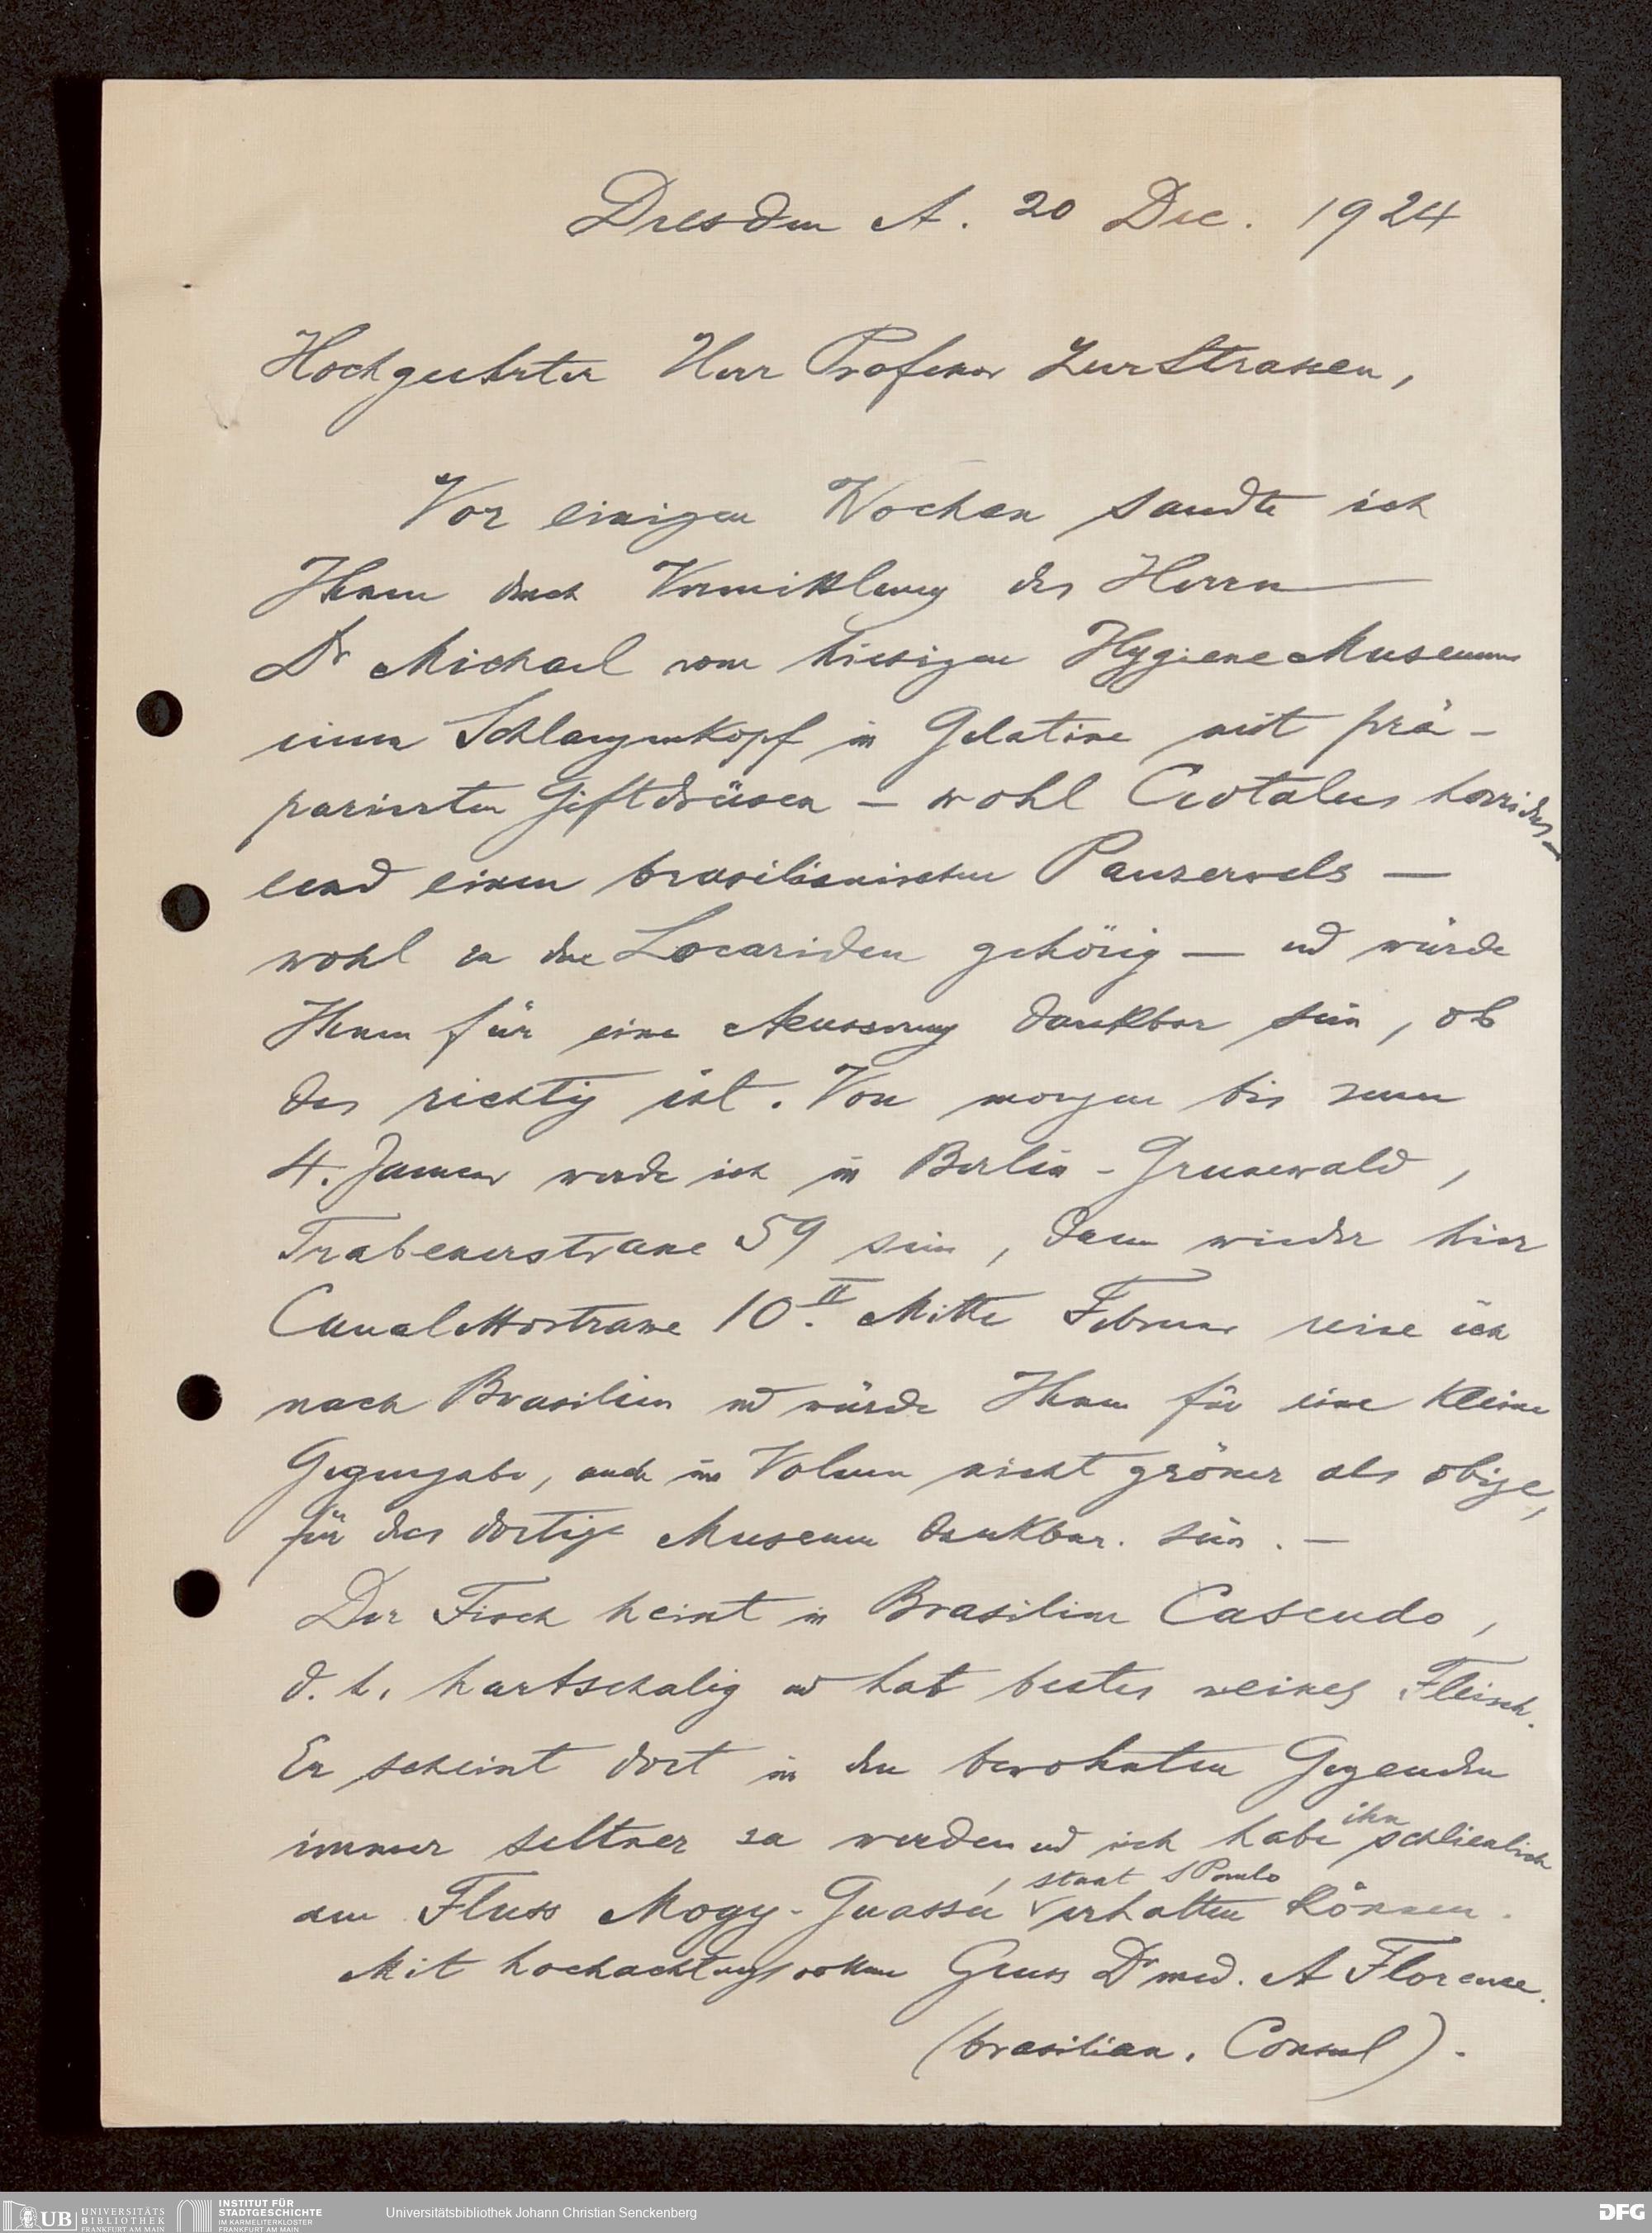 Dresden A. 20 Dec. 1924
Hochgeehrter Herr Professor Zur Strassen,
Vor einigen Wochen sandte ich
Ihnen durch Vermittlung des Herrn
Dr Michael vom hiesigen Hygiene Museum
einen Schlangenkopf in Gelatine mit prä-
parirten Giftdrüsen - wohl Crotalus horridus -
und einen brasilianischen Panzerwels -
wohl zu den Locariden gehörig - und würde
Ihnen für eine Aeusserung dankbar sein, ob
das richtig ist. Von morgen bis zum
4. Januar werde ich in Berlin-Grunewald,
Trabenerstrasse 59 sein, dann wieder hier
Canalettostrasse 10.II Mitte Februar reise ich
nach Brasilien und würde Ihnen für eine kleine
Gegengabe, auch im Volum nicht grösser als obige,
für das dortige Museum dankbar sein. -
Der Fisch heisst in Brasilien Cascudo,
d. h. hartschalig und hat bestes weisses Fleisch.
Er scheint dort in den bewohnten Gegenden
immer seltner zu werden und ich habe ihn schliesslich
am Fluss Mogy-Guassú, Staat S Paulo erhalten können.
Mit hochachtungsvollem Gruss Dr med. A Florence.
(brasilian. Consul).
UB UNIVERSITÄTS
BIBLIOTHEK
FRANKFURT AM MAIN
INSTITUT FÜR
STADTGESCHICHTE
IM KARMELITERKLOSTER
FRANKFURT AM MAIN
Universitätsbibliothek Johann Christian Senckenberg
DFG